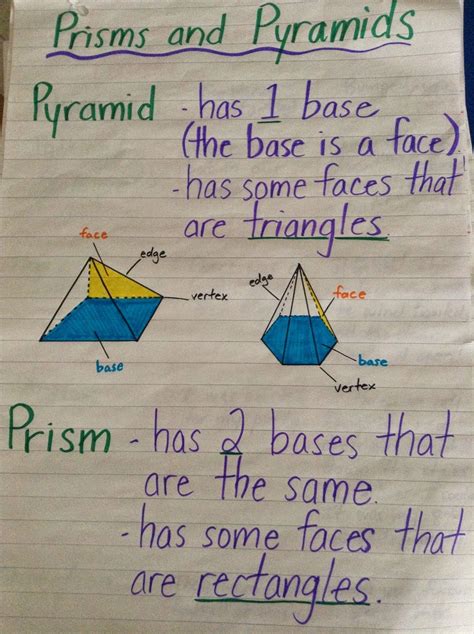 Prisms and Pyramids
Pyramid - has 1 base
(the base is a face)
- has some faces that
are triangles.
face
edge
vertex
base
edge
face
base
vertex
Prism - has 2 bases that
are the same.
- has some faces that
are rectangles.